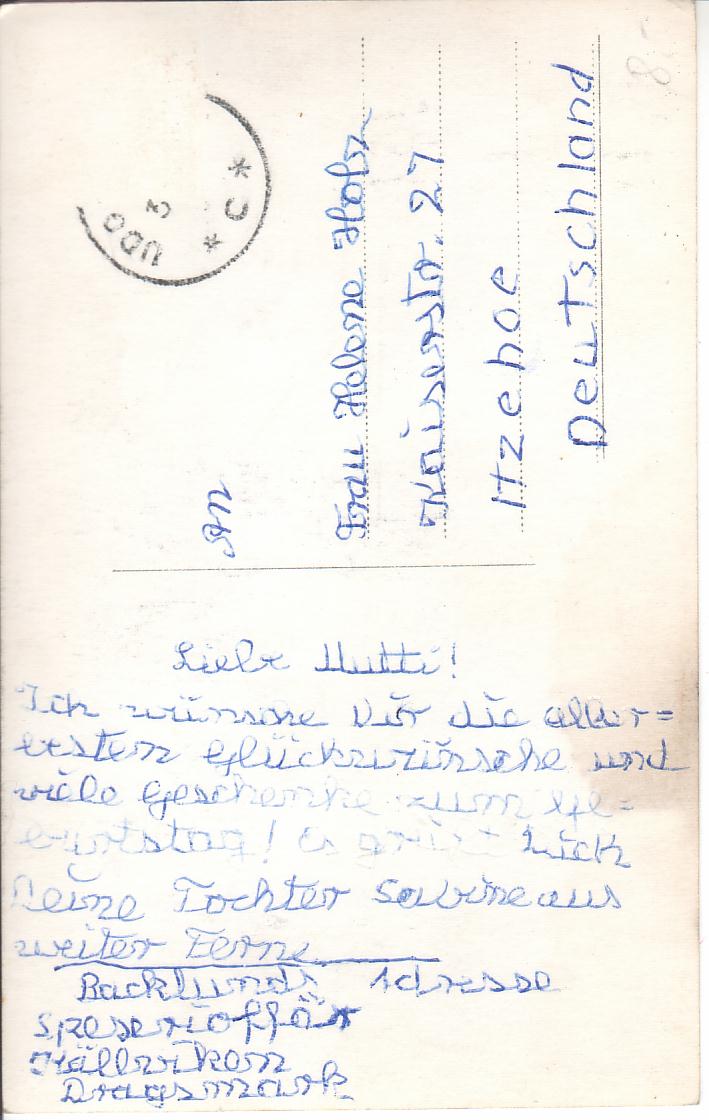 8.-
UDD
3
* C *
An
Frau Helene Hofn
Kaiserstr. 27
Itzehoe
Deutschland
Liebe Mutti!
Ich wünsche Dir die aller=
ersten Glückwünsche und
viele Geschenke zum Ge=
burtstag! Es grüßt Dich
Deine Tochter Sabine aus
weiter Ferne
Backlunds Adresse
Speserioffär
Källviken
Dragsmark